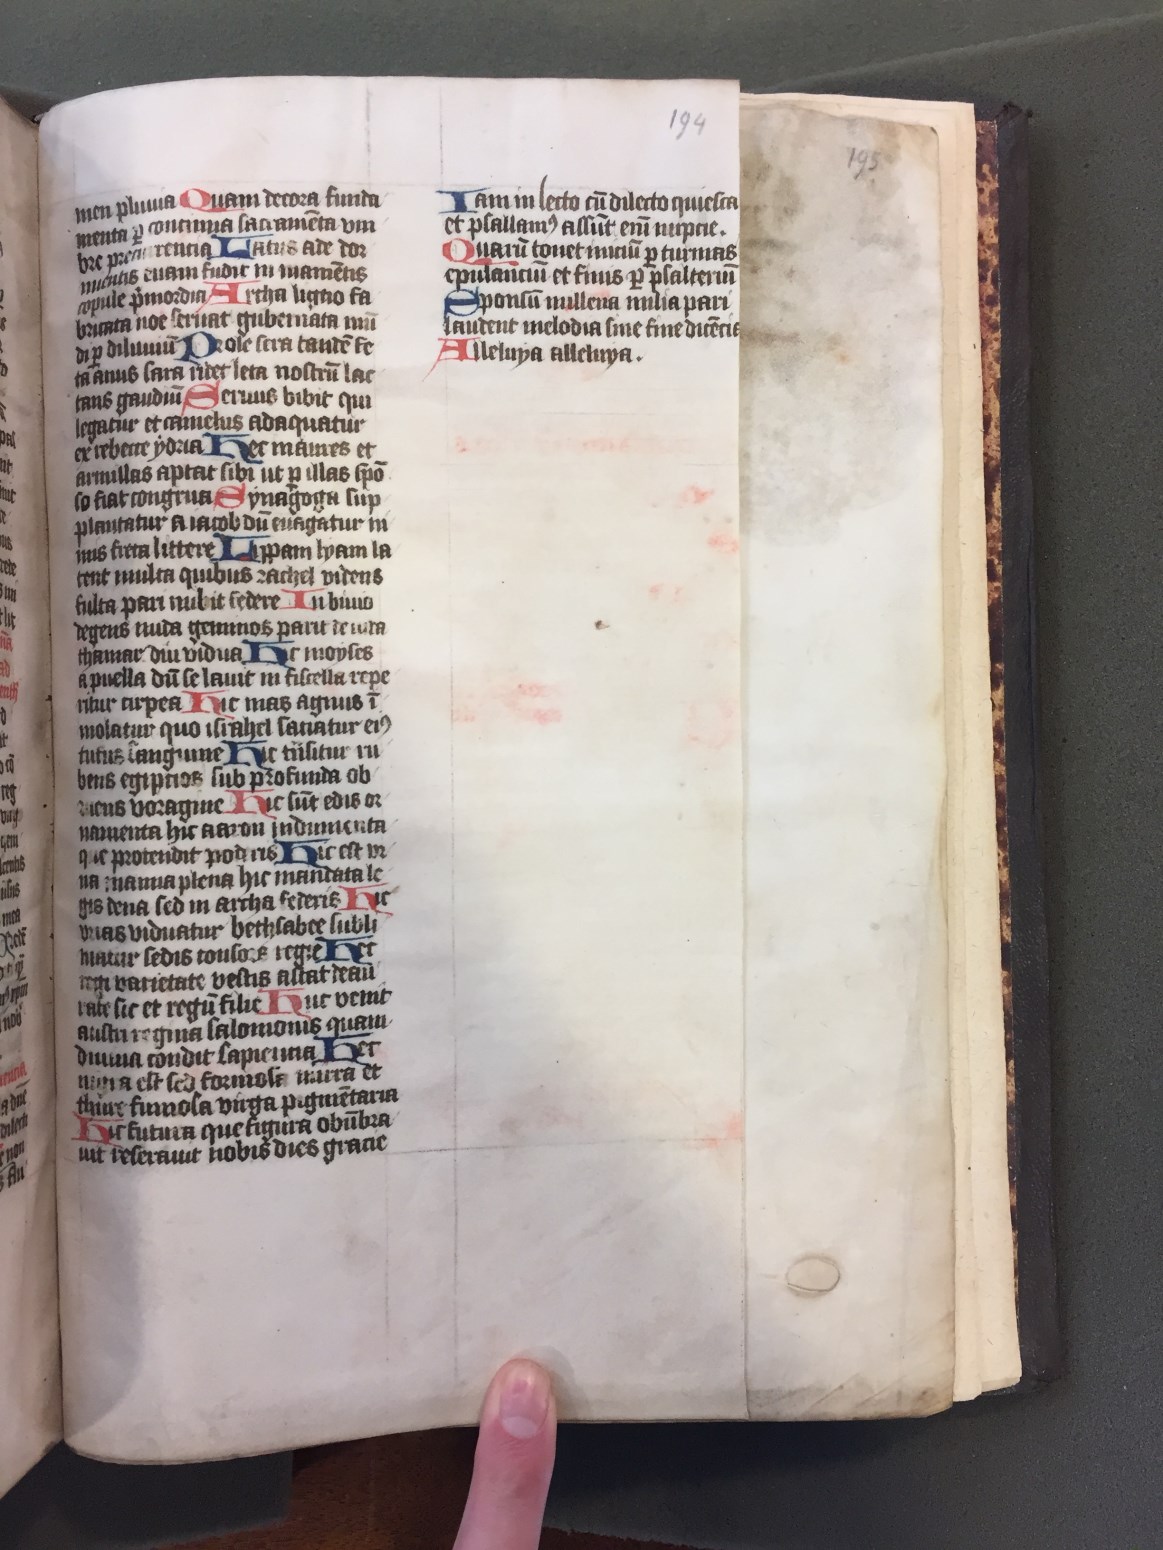 194
195
men pluuia Quam decora funda
menta ꝑ concinna sacramēta vm
bre precurrentia Latus ade dor
mientis euam fudit in manentis
copule p̄mordia Artha ligno fa
bricata noe seruat gubernata mū
di ꝑ diluuiū Prole sera tandē fe
ta anus sara ridet leta nostrū lac
tans gaudiū Seruus bibit qui
legatur et camelus adaquatur
ex rebecce ydria Hec maures et
armillas aptat sibi ut ꝑ illas spō
so fiat congrua Synagoga sup
plantatur a iacob dū euagatur ni
mis freta littere Lippam lyam la
tent multa quibus rachel videns
fulta pari nubit federe In biuio
tegens nuda geminos parit de iuda
thamar diu vidua Hic moyses
a puella dū se lauit in fiscella repe
ritur cirpea Hic mas agnus ī
molatur quo israhel saciatur eiꝰ
tutus sanguine Hic trāsitur ru
bens egiptios sub profunda ob
ruens voragine Hic sūt edis or
namenta hic aaron indumenta
que protendit poderis Hic est vr
na manna plena hic mandata le
gis dena sed in archa federis Hic
vrias viduatur bethsabee subli
matur sedis consors regie Hec
regi varietate vestis astat deau
rate sic et regū filie Huc venit
austri regina salomonis quam
diuina condit sapiencia Hec
nigra est sed formosa mirra et
thure fumosa virga pigmētaria
Hic futura que figura obūbra
uit reserauit nobis dies gracie
Iam in lecto cū dilecto quiesca
et psallamꝰ assūt enī nupcie.
Quarū tonet iniciū ꝑ turmas
epulanciū et finis ꝑ psalteriū
Sponsū millena milia pari
laudent melodia sine fine dicēcia
Alleluya alleluya.